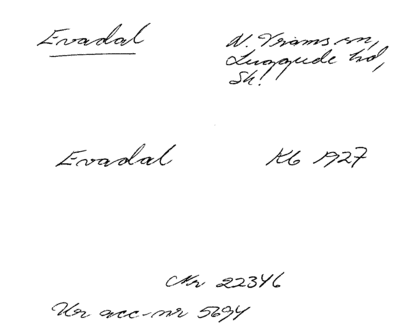 Evadal N. Vrams sn,
Luggude hd,
Sk.
Evadal Kb 1927
Nr 22346
Ur acc-nr 5694